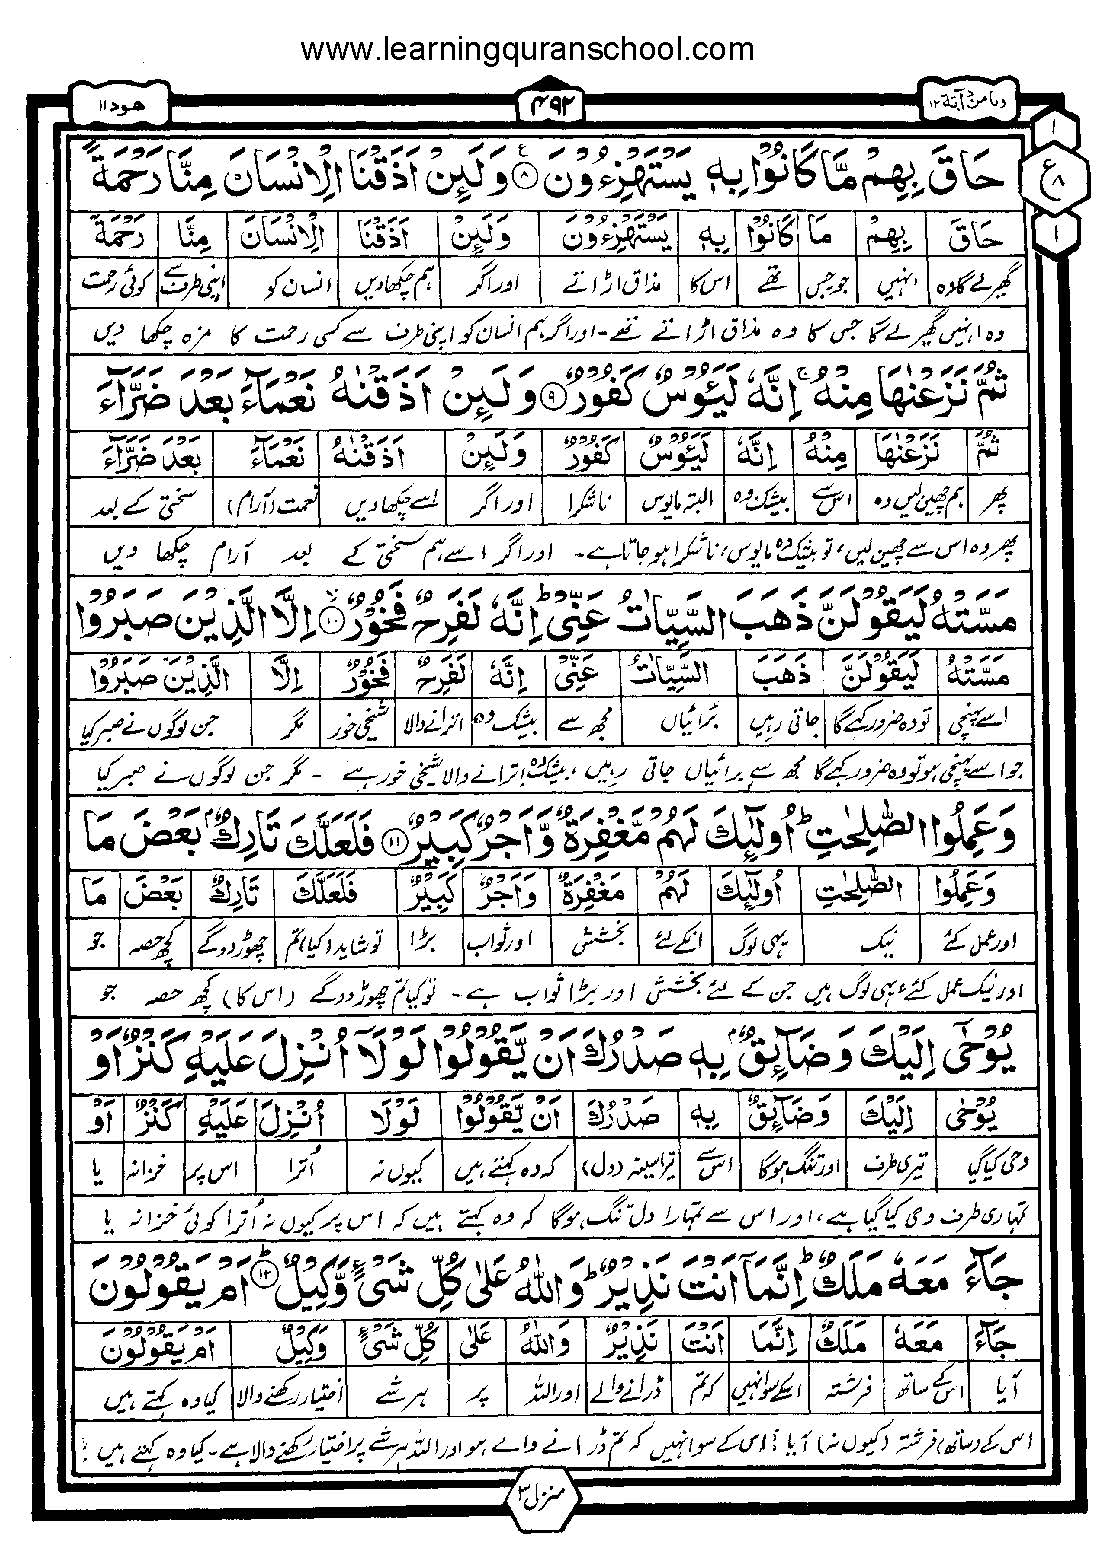 www.learningquranschool.com
وما من دآبة ۱۲
۴۹۲
هود ۱۱
۱
ع ۸
۱
حَاقَ بِهِمْ مَّا كَانُوْا بِهٖ يَسْتَهْزِءُوْنَ ۝۸ وَلَئِنْ اَذَقْنَا الْاِنْسَانَ مِنَّا رَحْمَةً
حَاقَ بِهِمْ مَا كَانُوْا بِهٖ يَسْتَهْزِءُوْنَ وَلَئِنْ اَذَقْنَا الْاِنْسَانَ مِنَّا رَحْمَةً
گھیرلے گا وہ انہیں جو جس تھے اس کا مذاق اڑاتے اور اگر ہم چکھا دیں انسان کو اپنی طرف سے کوئی رحمت
وہ انہیں گھیرلے گا جس کا وہ مذاق اڑاتے تھے۔ اور اگر ہم انسان کو اپنی طرف سے کسی رحمت کا مزہ چکھا دیں
ثُمَّ نَزَعْنٰهَا مِنْهُ ۚ اِنَّهٗ لَيَئُوْسٌ كَفُوْرٌ ۝۹ وَلَئِنْ اَذَقْنٰهُ نَعْمَآءَ بَعْدَ ضَرَّآءَ
ثُمَّ نَزَعْنٰهَا مِنْهُ اِنَّهٗ لَيَئُوْسٌ كَفُوْرٌ وَلَئِنْ اَذَقْنٰهُ نَعْمَآءَ بَعْدَ ضَرَّآءَ
پھر ہم چھین لیں وہ اس سے بیشک وہ البتہ مایوس ناشکرا اور اگر اسے چکھا دیں نعمت (آرام) سختی کے بعد
پھر وہ اس سے چھین لیں، تو بیشک وہ مایوس، ناشکرا ہو جاتا ہے۔ اور اگر اسے ہم سختی کے بعد آرام چکھا دیں
مَسَّتْهُ لَيَقُوْلَنَّ ذَهَبَ السَّيِّاٰتُ عَنِّيْ ؕ اِنَّهٗ لَفَرِحٌ فَخُوْرٌ ۝۱۰ اِلَّا الَّذِيْنَ صَبَرُوْا
مَسَّتْهُ لَيَقُوْلَنَّ ذَهَبَ السَّيِّاٰتُ عَنِّيْ اِنَّهٗ لَفَرِحٌ فَخُوْرٌ اِلَّا الَّذِيْنَ صَبَرُوْا
اسے پہنچی تو وہ ضرور کہے گا جاتی رہیں برائیاں مجھ سے بیشک وہ اترانے والا شیخی خور مگر جن لوگوں نے صبر کیا
جو اسے پہنچی ہو تو وہ ضرور کہے گا مجھ سے برائیاں جاتی رہیں، بیشک وہ اترانے والا شیخی خور ہے ۔ مگر جن لوگوں نے صبر کیا
وَعَمِلُوا الصّٰلِحٰتِ ؕ اُولٰٓئِكَ لَهُمْ مَّغْفِرَةٌ وَّاَجْرٌ كَبِيْرٌ ۝۱۱ فَلَعَلَّكَ تَارِكٌۢ بَعْضَ مَا
وَعَمِلُوا الصّٰلِحٰتِ اُولٰٓئِكَ لَهُمْ مَغْفِرَةٌ وَاَجْرٌ كَبِيْرٌ فَلَعَلَّكَ تَارِكٌ بَعْضَ مَا
اور عمل کئے نیک یہی لوگ انکے لئے بخشش اور ثواب بڑا تو شاید (کیا) تم چھوڑ دوگے کچھ حصہ جو
اور نیک عمل کئے، یہی لوگ ہیں جن کے لئے بخشش اور بڑا ثواب ہے۔ تو کیا تم چھوڑ دوگے (اس کا) کچھ حصہ جو
يُوْحٰٓى اِلَيْكَ وَضَآئِقٌۢ بِهٖ صَدْرُكَ اَنْ يَّقُوْلُوْا لَوْلَاۤ اُنْزِلَ عَلَيْهِ كَنْزٌ اَوْ
يُوْحٰى اِلَيْكَ وَضَآئِقٌ بِهٖ صَدْرُكَ اَنْ يَّقُوْلُوْا لَوْلَا اُنْزِلَ عَلَيْهِ كَنْزٌ اَوْ
وحی کیا گیا تیری طرف اور تنگ ہوگا اس سے تیرا سینہ (دل) کہ وہ کہتے ہیں کیوں نہ اُترا اس پر خزانہ یا
تمہاری طرف وحی کیا گیا ہے، اور اس سے تمہارا دل تنگ ہوگا کہ وہ کہتے ہیں کہ اس پر کیوں نہ اُترا کوئی خزانہ یا
جَآءَ مَعَهٗ مَلَكٌ ؕ اِنَّمَاۤ اَنْتَ نَذِيْرٌ ؕ وَاللّٰهُ عَلٰى كُلِّ شَيْءٍ وَّكِيْلٌ ۝۱۲ؕ اَمْ يَقُوْلُوْنَ
جَآءَ مَعَهٗ مَلَكٌ اِنَّمَا اَنْتَ نَذِيْرٌ وَاللّٰهُ عَلٰى كُلِّ شَيْءٍ وَكِيْلٌ اَمْ يَقُوْلُوْنَ
آیا اس کے ساتھ فرشتہ اسکے سوا نہیں کہ تم ڈرانے والے اور اللہ پر ہر شے اختیار رکھنے والا کیا وہ کہتے ہیں
اس کے (ساتھ) فرشتہ (کیوں نہ) آیا؟ اس کے سوا نہیں کہ تم ڈرانے والے ہو اور اللہ ہر شے پر اختیار رکھنے والا ہے۔ کیا وہ کہتے ہیں
منزل ۳